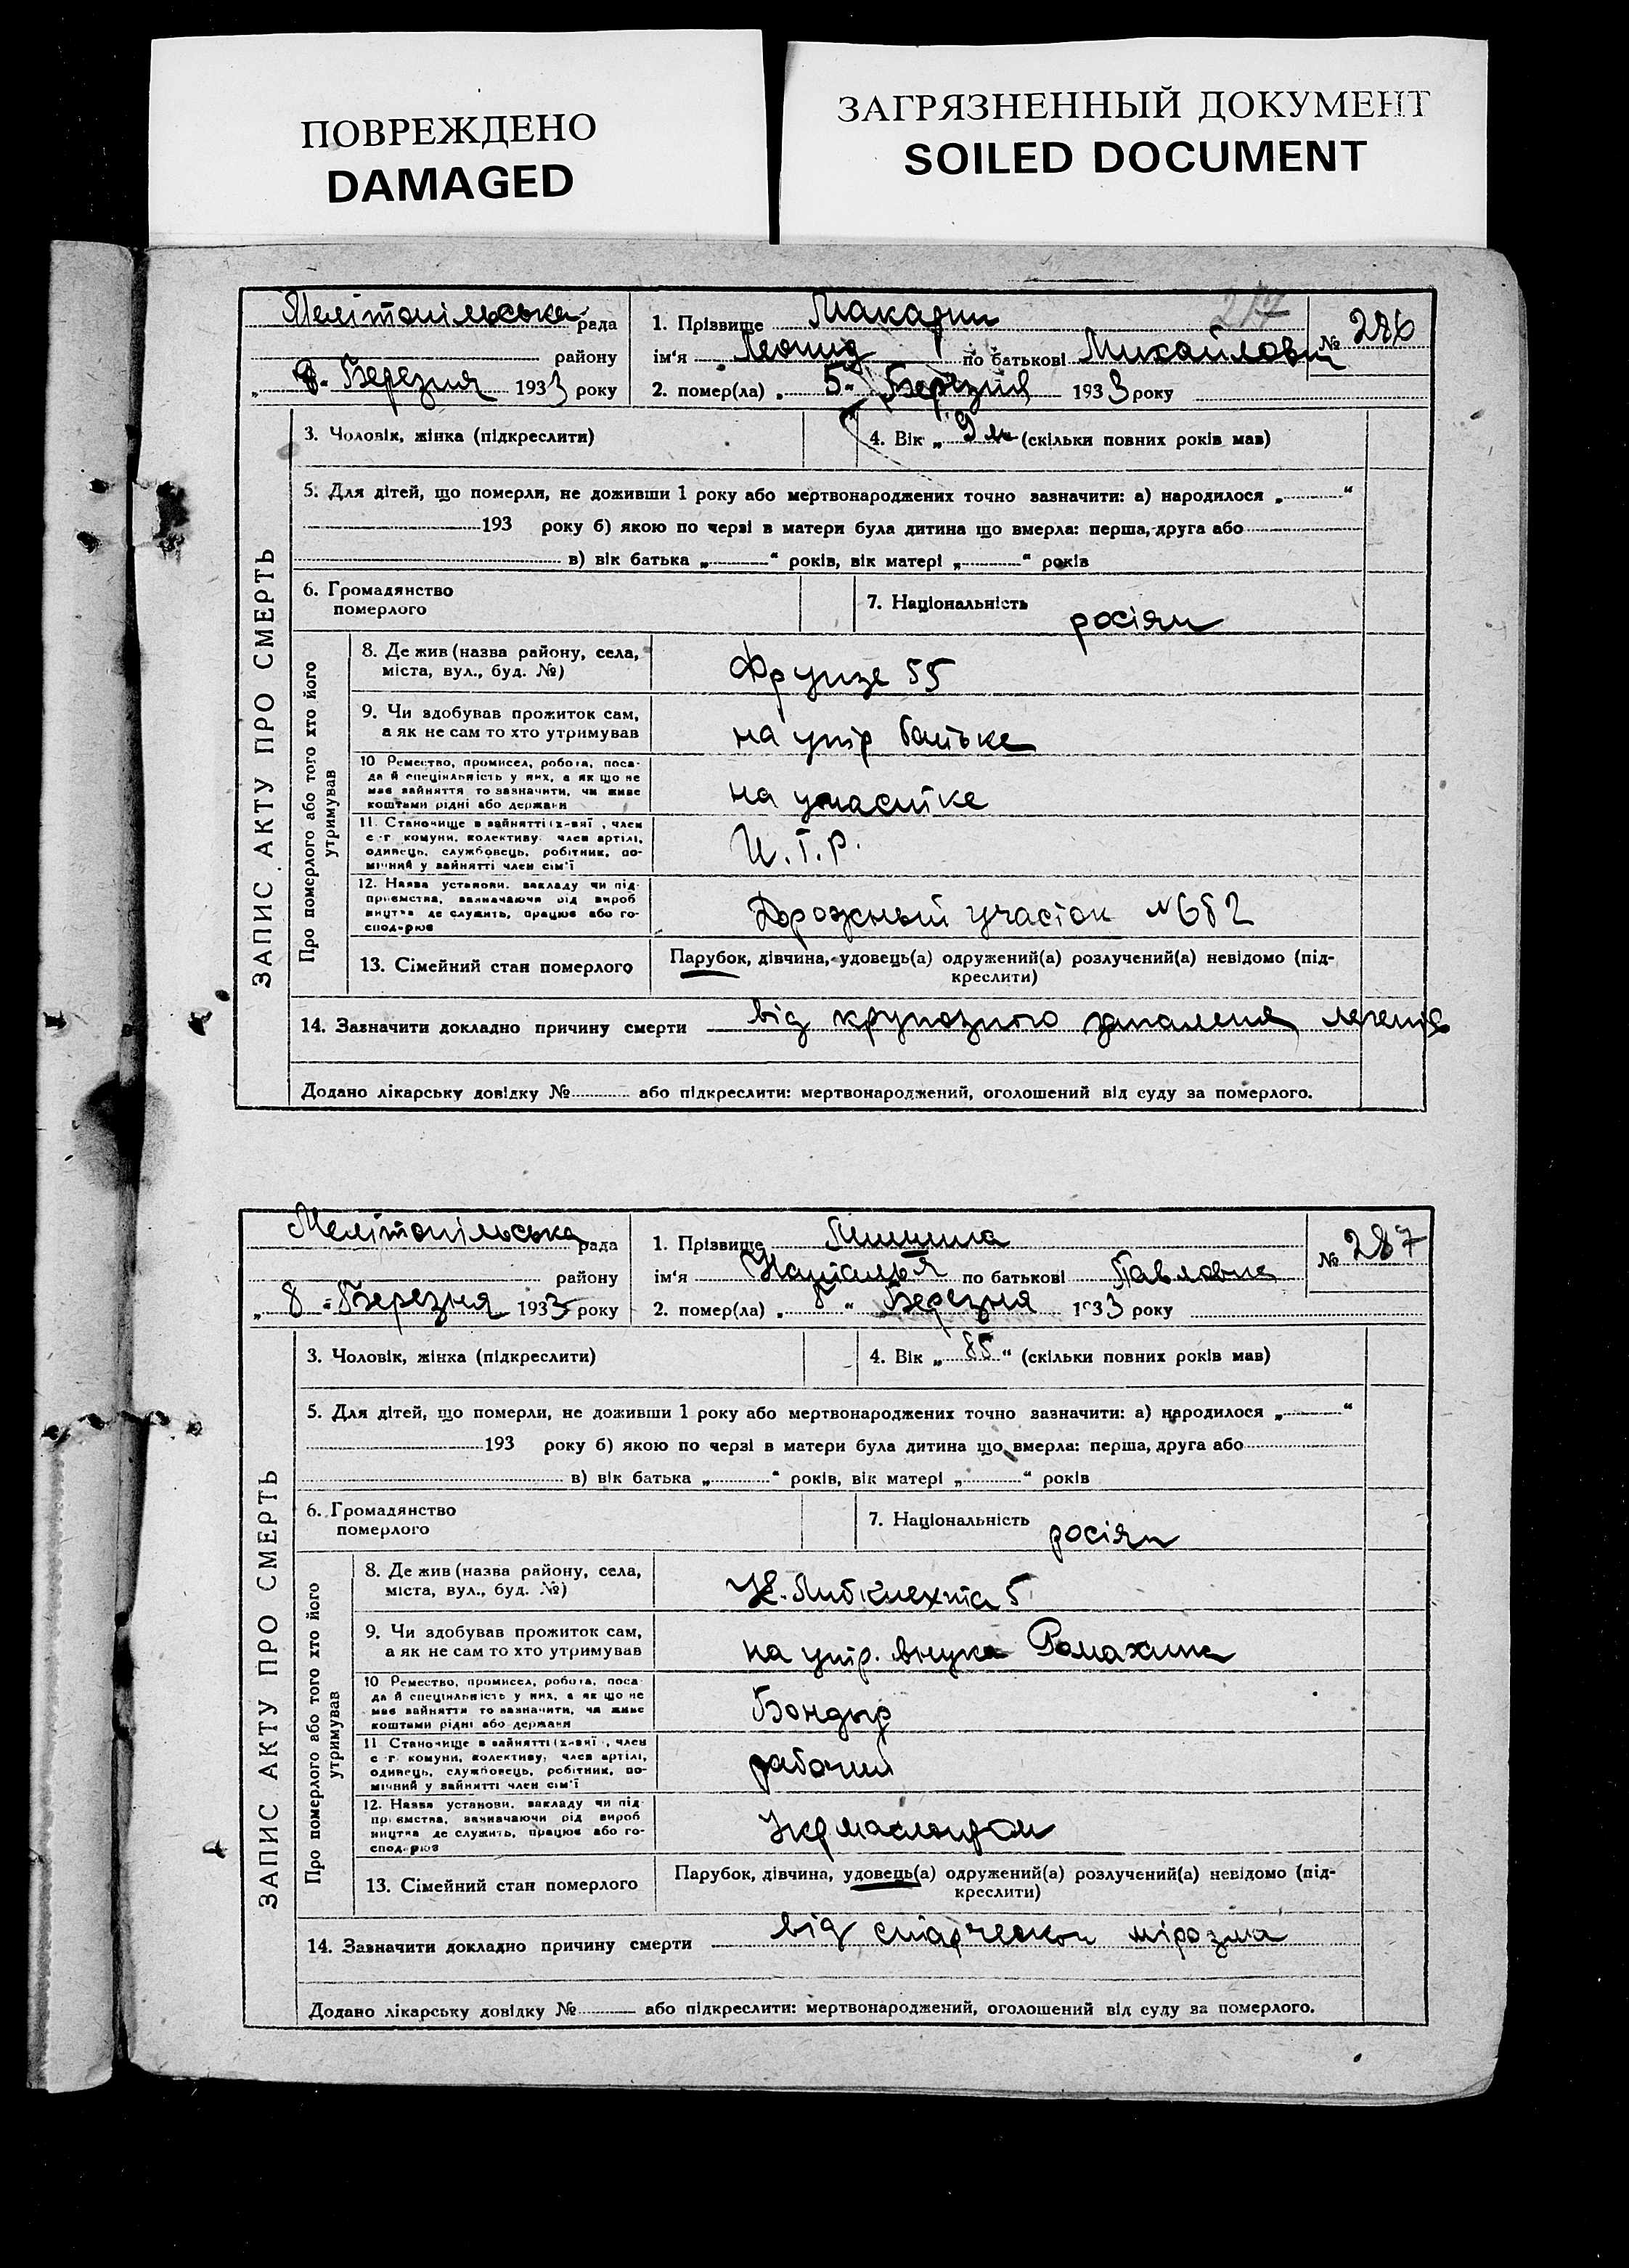 ПОВРЕЖДЕНО
DAMAGED
ЗАГРЯЗНЕННЫЙ ДОКУМЕНТ
SOILED DOCUMENT
217
Мелітопільська рада
району
„ 8 " Березня 1933 року
1. Прізвище Макарин
ім'я Леонид по батькові Михайлович
2. помер(ла) „ 5 " Березня 1933 року
№ 286
ЗАПИС АКТУ ПРО СМЕРТЬ
3. Чоловік, жінка (підкреслити)
4. Вік „ 9 м (скільки повних років мав)
5. Для дітей, що померли, не доживши 1 року або мертвонароджених точно зазначити: а) народилося „ "
193 року б) якою по черзі в матери була дитина що вмерла: перша, друга або
в) вік батька „ " років, вік матері „ " років
6. Громадянство
померлого
7. Національність росіян
Про померлого або того хто його
утримував
8. Де жив (назва району, села,
міста, вул., буд. №)
Фрунзе 55
9. Чи здобував прожиток сам,
а як не сам то хто утримував
на утр батьке
10 Ремество, промисел, робота, поса-
да й спеціяльність у них, а як що не
має зайняття то зазначити, чи живе
коштами рідні або держави
на участке
11. Становище в зайнятті (хазяї, член
с.-г. комуни, колективу, член артілі,
одинець, службовець, робітник, по-
мічний у зайнятті член сім'ї
И.Т.Р.
12. Назва установи, закладу чи під-
приємства, зазначаючи рід вироб
ництва де служить, працює або го-
сподарює
Дорожный участок №682
13. Сімейний стан померлого
Парубок, дівчина, удовець(а) одружений(а) розлучений(а) невідомо (під-
креслити)
14. Зазначити докладно причину смерти від крупозного запалення легенів
Додано лікарську довідку № або підкреслити: мертвонароджений, оголошений від суду за померлого.
Мелітопільська рада
району
„ 8 " Березня 1933 року
1. Прізвище
ім'я Наталья по батькові Павловна
2. помер(ла) „ 8 " Березня 1933 року
№ 287
ЗАПИС АКТУ ПРО СМЕРТЬ
3. Чоловік, жінка (підкреслити)
4. Вік „ 85 " (скільки повних років мав)
5. Для дітей, що померли, не доживши 1 року або мертвонароджених точно зазначити: а) народилося „ "
193 року б) якою по черзі в матери була дитина що вмерла: перша, друга або
в) вік батька „ " років, вік матері „ " років
6. Громадянство
померлого
7. Національність росіян
Про померлого або того хто його
утримував
8. Де жив (назва району, села,
міста, вул., буд. №)
К. Либкнехта 5
9. Чи здобував прожиток сам,
а як не сам то хто утримував
на утр. внука Ромахина
10 Ремество, промисел, робота, поса-
да й спеціяльність у них, а як що не
має зайняття то зазначити, чи живе
коштами рідні або держави
Бондыр
11 Становище в зайнятті (хазяї, член
с.-г. комуни, колективу, член артілі,
одинець, службовець, робітник, по-
мічний у зайнятті член сім'ї
рабочий
12. Назва установи, закладу чи під-
приємства, зазначаючи рід вироб
ництва де служить, працює або го-
сподарює
13. Сімейний стан померлого
Парубок, дівчина, удовець(а) одружений(а) розлучений(а) невідомо (під-
креслити)
14. Зазначити докладно причину смерти від старческои міразма
Додано лікарську довідку № або підкреслити: мертвонароджений, оголошений від суду за померлого.